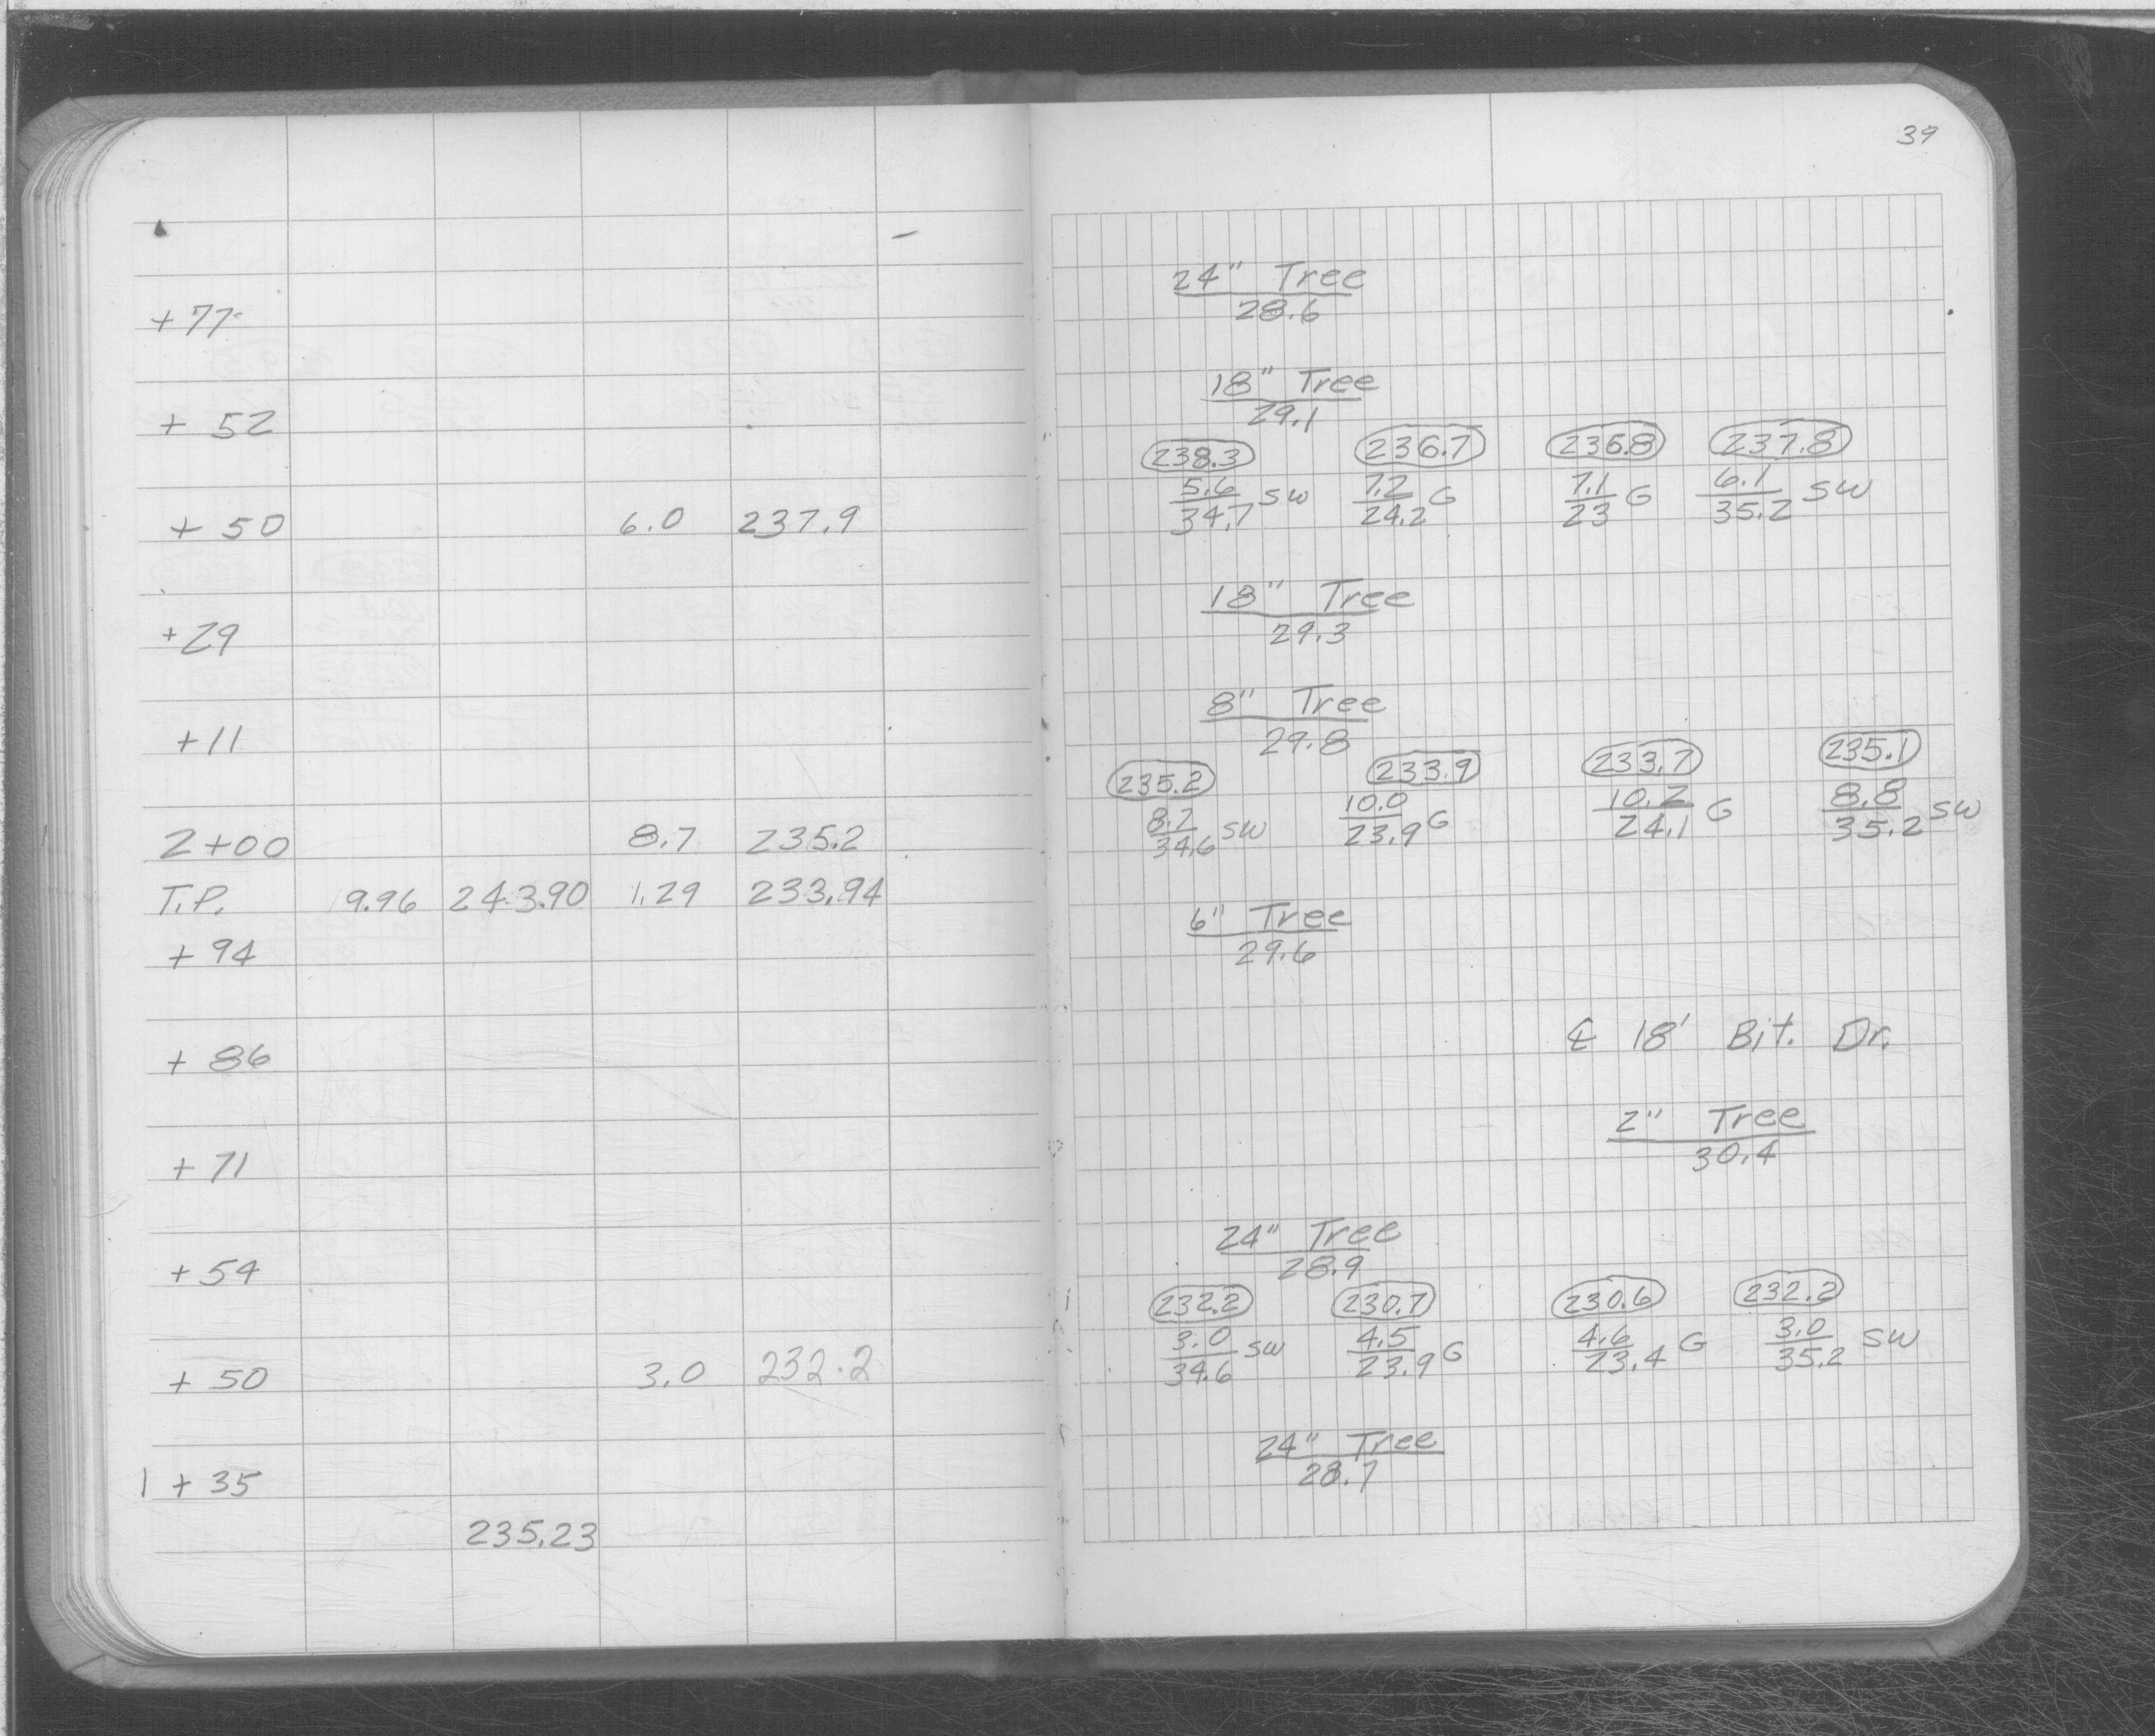 39
24" Tree
+77 28.6
18" Tree
+ 52 29.1
238.3 236.7 236.8 237.8
5.6 SW 7.2 G 7.1 G 6.1 SW
+ 50 6.0 237.9 34.7 24.2 23 35.2
18" Tree
+29 29.3
8" Tree
+11 29.8
235.2 233.9 233.7 235.1
8.7 SW 10.0 G 10.2 G 8.8 SW
2+00 8.7 235.2 34.6 23.9 24.1 35.2
T.P. 9.96 243.90 1.29 233.94 6" Tree
+ 94 29.6
+ 86 ℄ 18' Bit. Dr.
2" Tree
+ 71 30.4
24" Tree
+54 28.9
232.2 230.7 230.6 232.2
3.0 SW 4.5 G 4.6 G 3.0 SW
+ 50 3.0 232.2 34.6 23.9 23.4 35.2
24" Tree
1 + 35 28.7
235.23